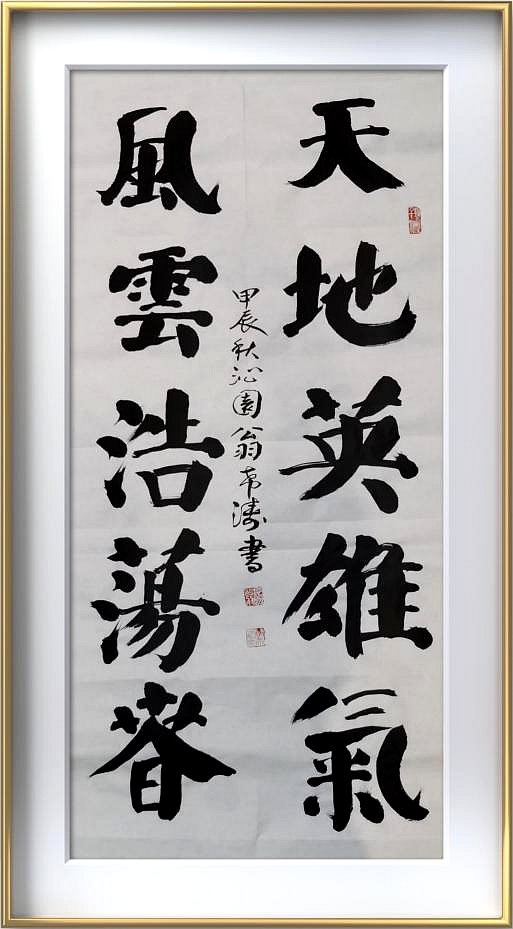 天地英雄氣
風雲浩蕩春
甲辰秋沁園翁希濤書